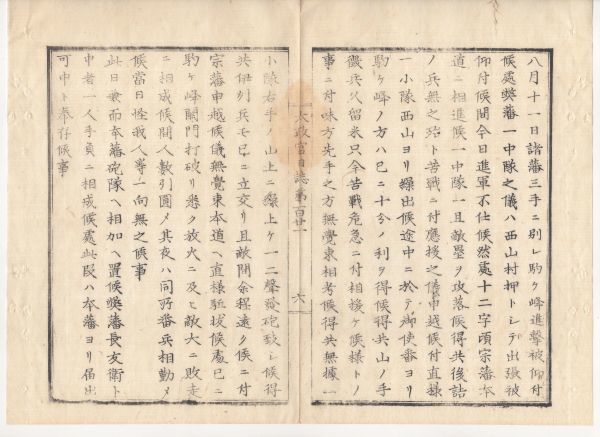 八月十一日諸藩三手ニ別レ駒ケ峰進撃被仰付
候處弊藩一中隊之儀ハ西山村押トシテ出張被
仰付候間今日進軍不仕候然處十二字頃宗藩本
道ニ相進候一中隊一旦敵壘ヲ攻落候得共後詰
ノ兵無之殆ト苦戰ニ付應援之儀申越候付直様
一小隊西山ヨリ繰出候途中ニ於テ御使番ヨリ
駒ケ峰ノ方ハ已ニ十分ノ利ヲ得候得共山ノ手
徴兵久留米只今苦戰危急ニ付相援ケ候様トノ
事ニ付味方先手之方無覺束相考候得共無據一
太政官日誌第百廿一
六
小隊右手ノ山上ニ繰上ケ一二聲發砲致シ候得
共何列兵モ已ニ立交リ且敵間余程遠ク候ニ付
宗藩申越候儀無覺束本道ヘ直様駈拔候處已ニ
駒ケ峰關門打破リ悉ク放火ニ及ヒ敵大ニ敗走
ニ相成候間人數引圓メ其夜ハ同所番兵相勤メ
候當日怪我人等一向無之候事
此日兼而本藩砲隊ヘ相加ヘ置候弊藩長友衛ト
申者一人手負ニ相成候處此段ハ本藩ヨリ届出
可申ト奉存候事